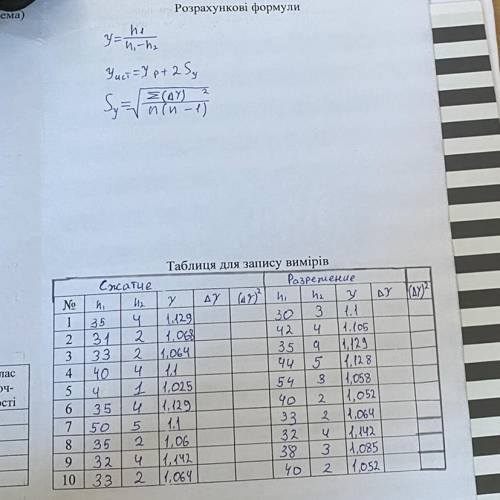 ема)
Розрахункові формули
γ = h1 / (h1 - h2)
γист = γр + 2 Sγ
Sγ = √(Σ(Δγ)² / n(n - 1))
Таблиця для запису вимірів
Сжатие Разрежение
№ h1 h2 γ Δγ (Δγ)² h1 h2 γ Δγ (Δγ)²
1 35 4 1,129 30 3 1.1
2 31 2 1,068 42 4 1.105
3 33 2 1,064 35 4 1,129
4 40 4 1.1 44 5 1,128
5 4 1 1,025 54 3 1,058
6 35 4 1,129 40 2 1,052
7 50 5 1.1 33 2 1,064
8 35 2 1,06 32 4 1,142
9 32 4 1,142 38 3 1,085
10 33 2 1,064 40 2 1,052
лас
оч-
ості